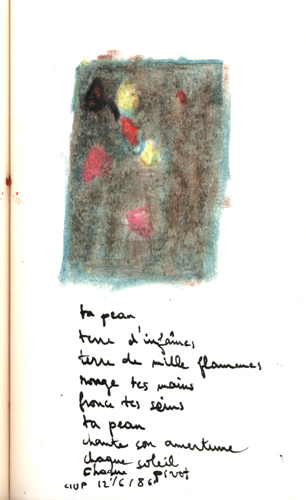 ta peau
terre d'
terre de mille flammes
tes mains
fronce tes seins
ta peau
chante son amertume
chaque soleil
chaque
CIUP 12/6/86